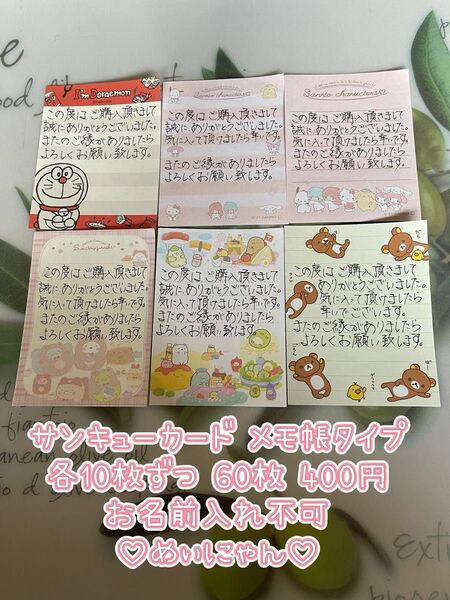 I'm Doraemon
この度はご購入頂きまして
誠にありがとうございました。
またのご縁がありましたら
よろしくお願い致します。
Sanrio characters
この度はご購入頂きまして
誠にありがとうございました。
気に入って頂けましたら幸いです。
またのご縁がありましたら
よろしくお願い致します。
Sanrio characters♡
この度はご購入頂きまして
誠にありがとうございました。
気に入って頂けましたら幸いです。
またのご縁がありましたら
よろしくお願い致します。
この度はご購入頂きまして
誠にありがとうございました。
気に入って頂けましたら幸いです。
またのご縁がありましたら
よろしくお願い致します。
この度はご購入頂きまして
誠にありがとうございました。
気に入って頂けましたら幸いです。
またのご縁がありましたら
よろしくお願い致します。
この度はご購入頂きまして
誠にありがとうございました。
気に入って頂けましたら幸いです。
またのご縁がありましたら
よろしくお願い致します。
サンキューカード メモ帳タイプ
各10枚ずつ 60枚 400円
お名前入れ不可
♡めいにゃん♡